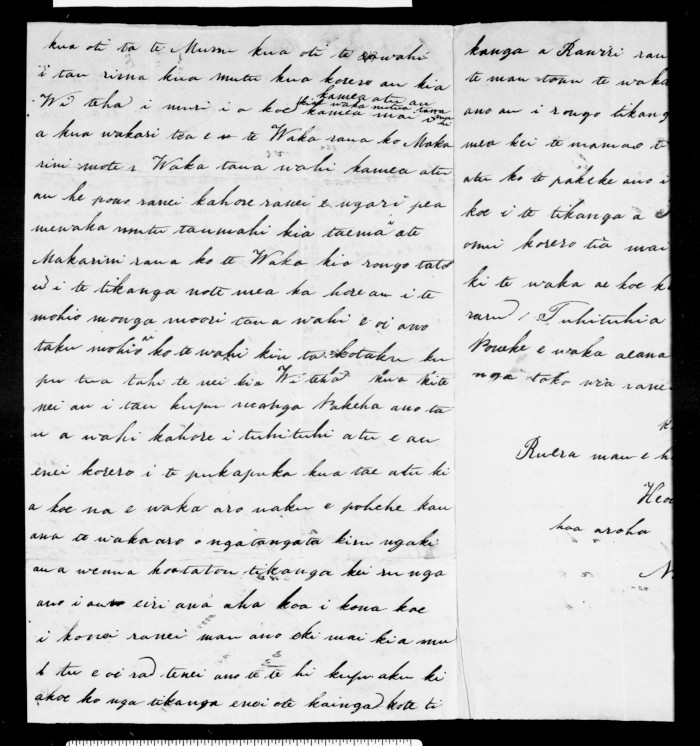 kua oti ta te Muru kua oti te wahi
i tau rima kua mutu kua korero au kia
kamea atu au
Wi teha i muri i a koe kamea mai
a kua wakari tea e te Waka raua ko Maka
rini mote Waka taua wahi kamea atu
au he pono ranei kahore ranei e ngari pea
mewaka mutu taumahi kia taema ate
Makarini raua ko te Waka kia rongo tatou
i te tikanga note mea ka hore au i te
mohio monga moori taua wahi e oi ano
taku mohio ko te wahi kiri ta ku
pu tua tahi te nei kia Wi teha kua kite
nei au i tau kupu Pakeha ano ta
u a wahi kahore i tuhituhi atu e au
enei korero i te pukapuka kua tae atu ki
a koe na e waka aro naku e pohehe kau
ana te wakaaro o ngatangata kiri ngaki
aua wenua tikanga kei runga
ano i au eiri ana aha koa i kona koe
i konei ranei mau ano eki mai kia mu
tu e oi rad tenei ano te te hi kupu aku ki
akoe ko nga tikanga enei ote kainga kote ti
kanga a Rawiri rau
te mau te waka
ano au i rongo tikang
mea kei te mamao t
atu ko te pakeke ano i
koe i te tikanga a
omu korero tia mai
ki te waka ae koe k
raru Tuhituhia
Poneke e waka aeana
nga toko wia rane
Ruera mau e h
Heoi
hoa aroha
N